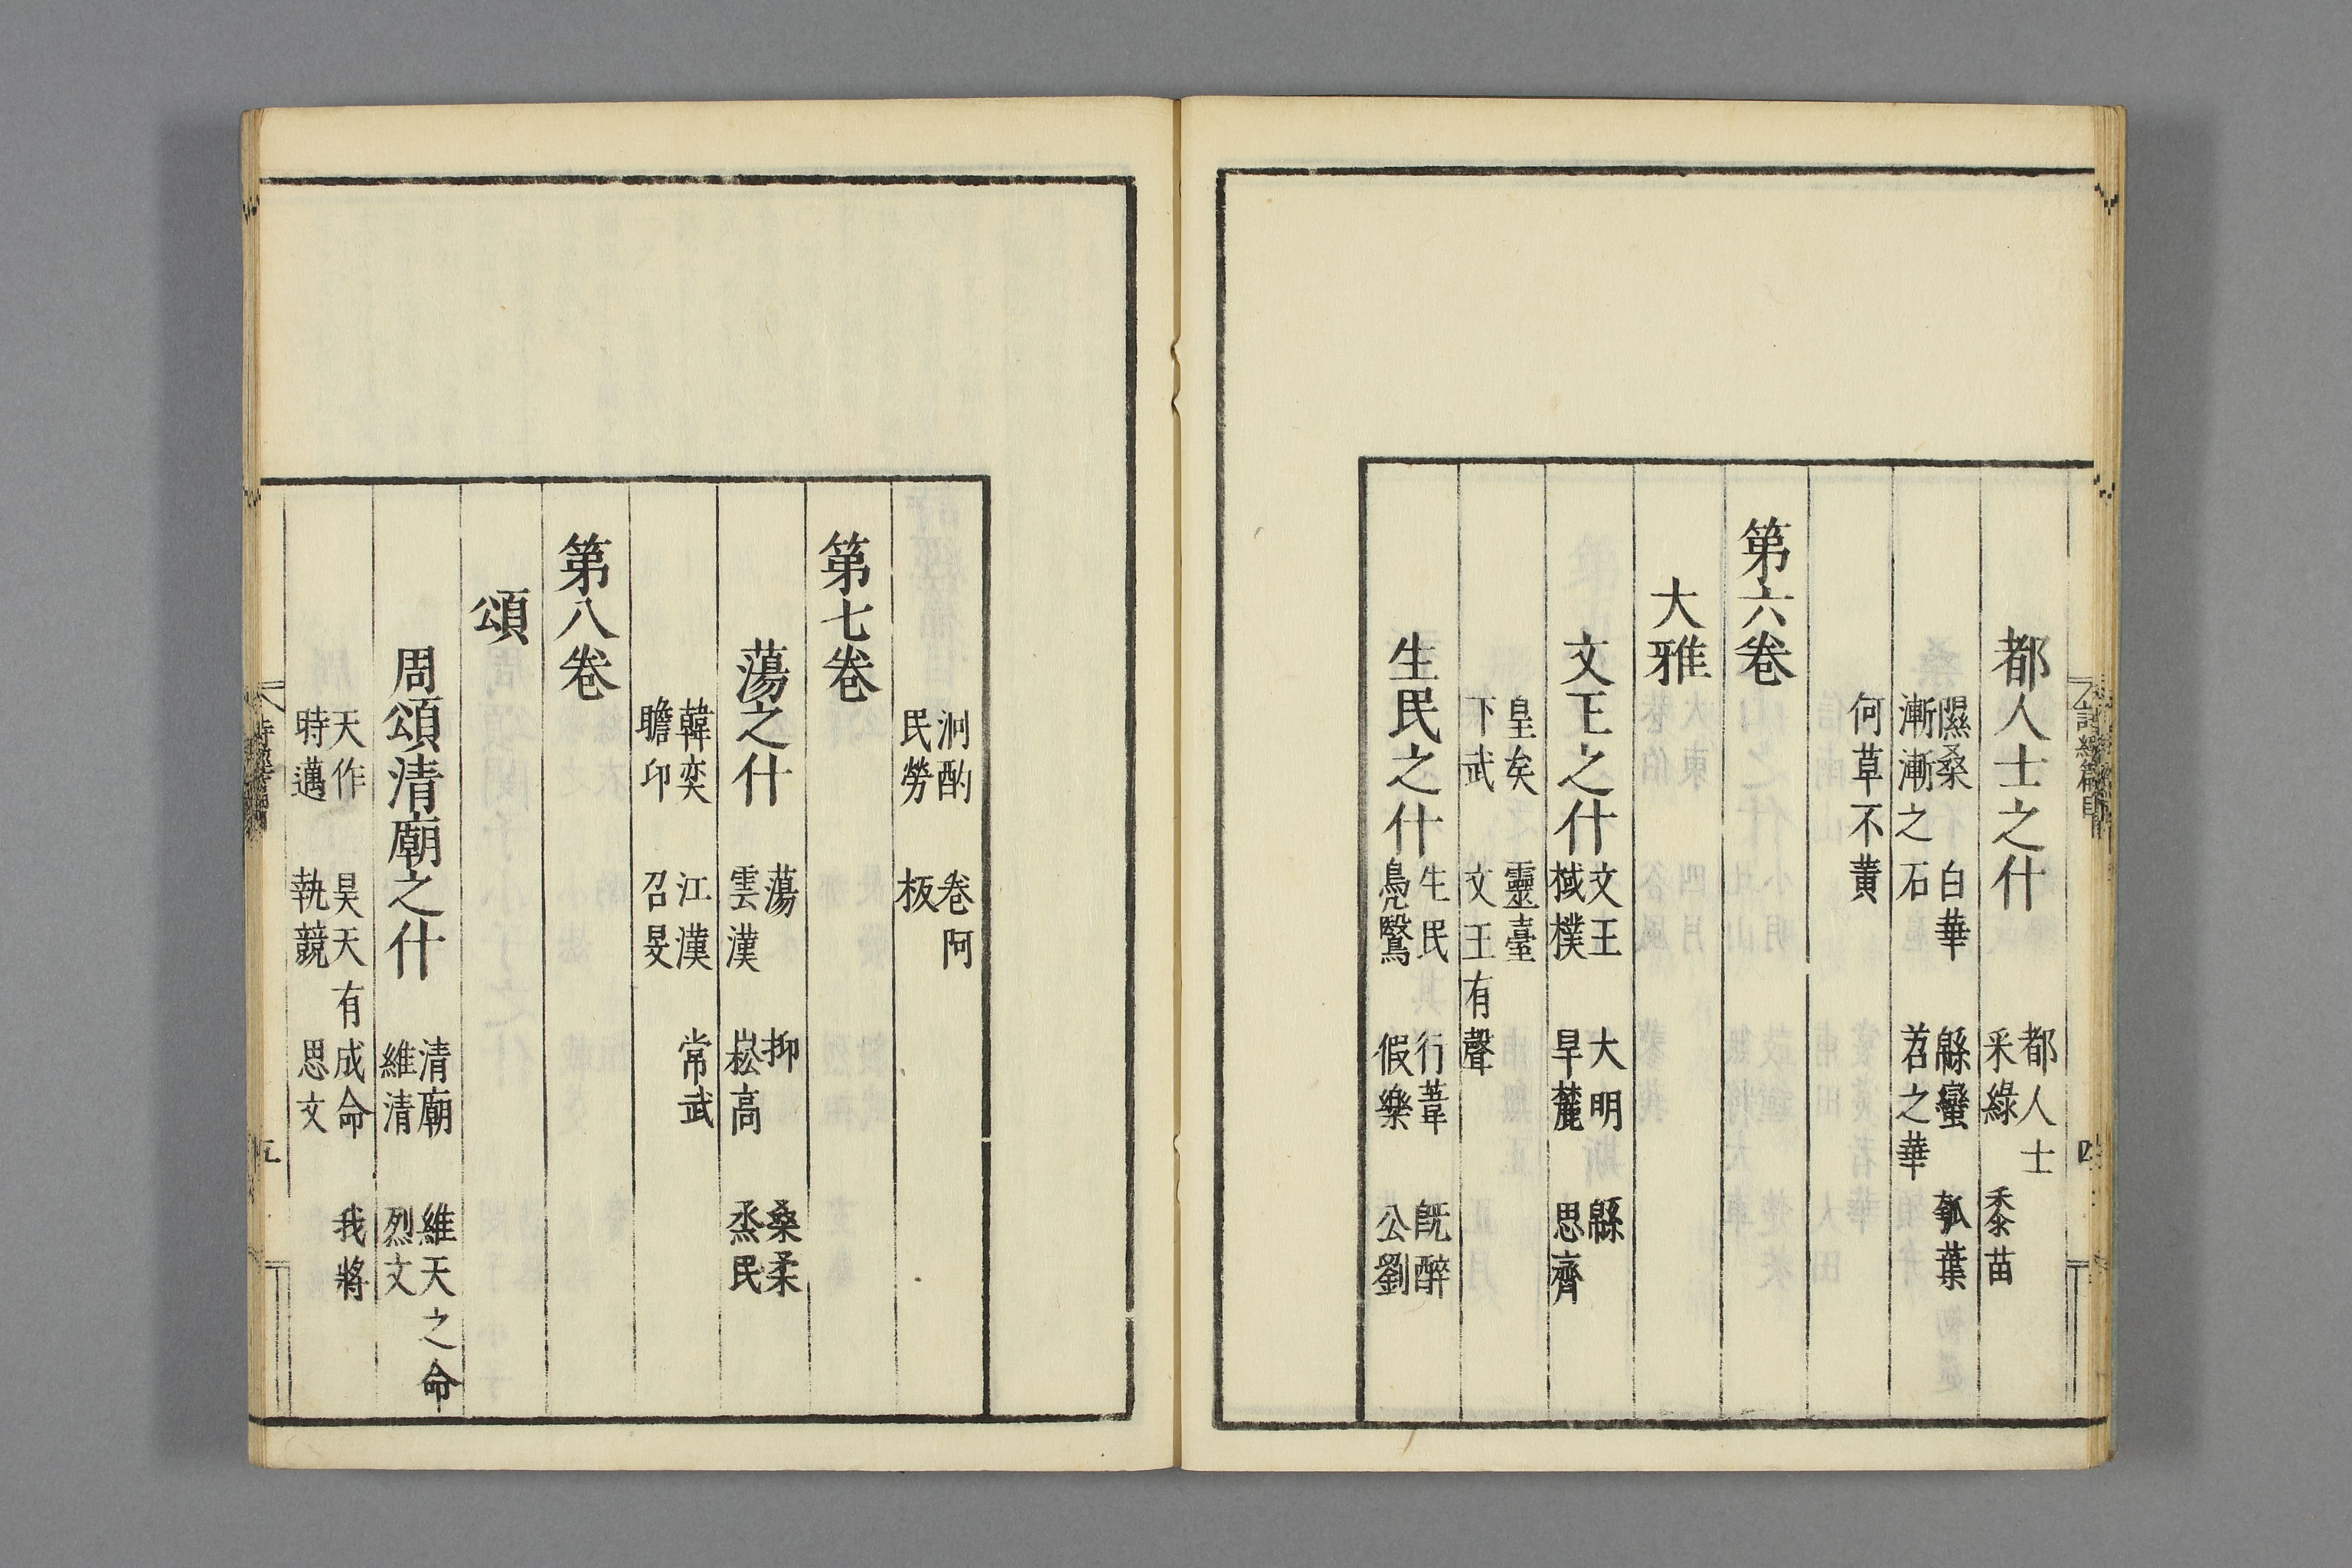 都人士之什　都人士
采綠　黍苗
隰桑　白華　緜蠻　瓠葉
漸漸之石　苕之華
何草不黃
第六卷
大雅
文王之什　文王　大明　緜
棫樸　旱麓　思齊
皇矣　靈臺
下武　文王有聲
生民之什　生民　行葦　旣醉
鳧鷖　假樂　公劉
泂酌　卷阿
民勞　板
第七卷
蕩之什　蕩　抑　桑柔
雲漢　崧高　烝民
韓奕　江漢　常武
瞻卬　召旻
第八卷
頌
周頌清廟之什　清廟　維天之命
維清　烈文
天作　昊天有成命　我將
時邁　執競　思文